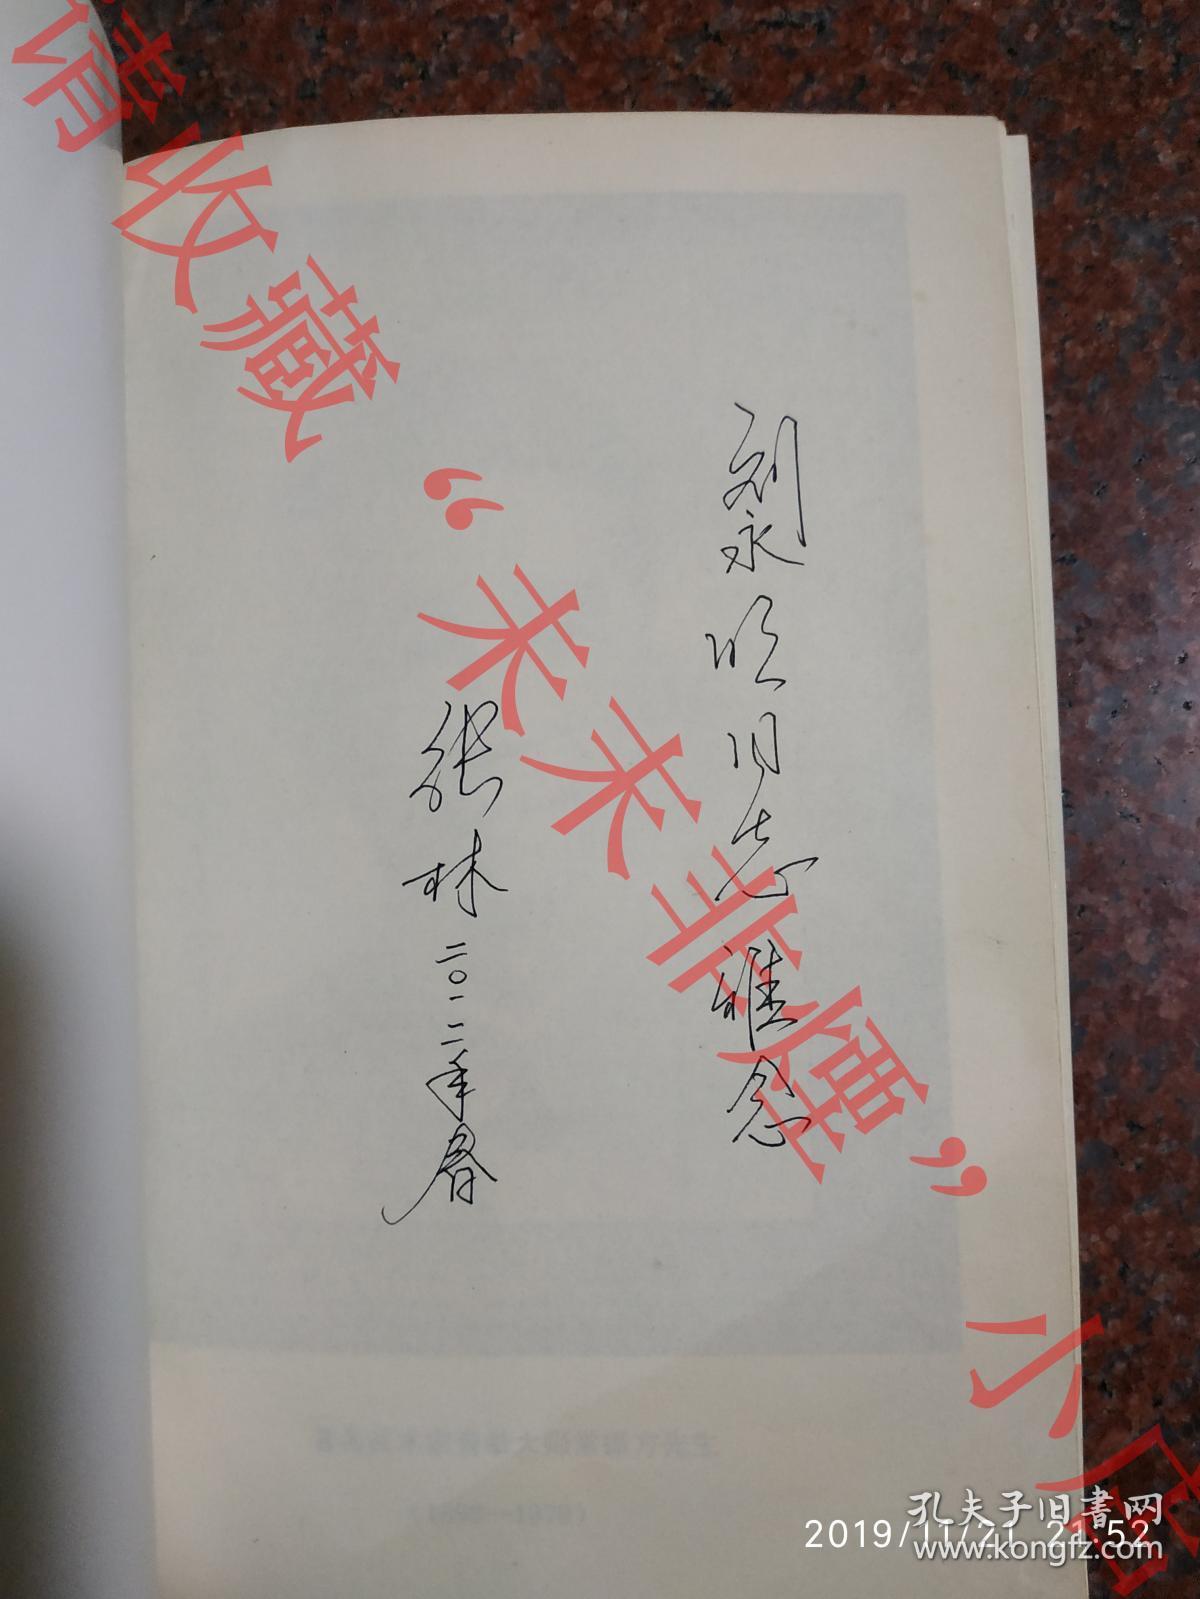 刘永明同志
雅念
张林
二〇一二年春
请收藏“未未非烟”小店
孔夫子旧书网
2019/11/21 21:52
www.kongfz.com